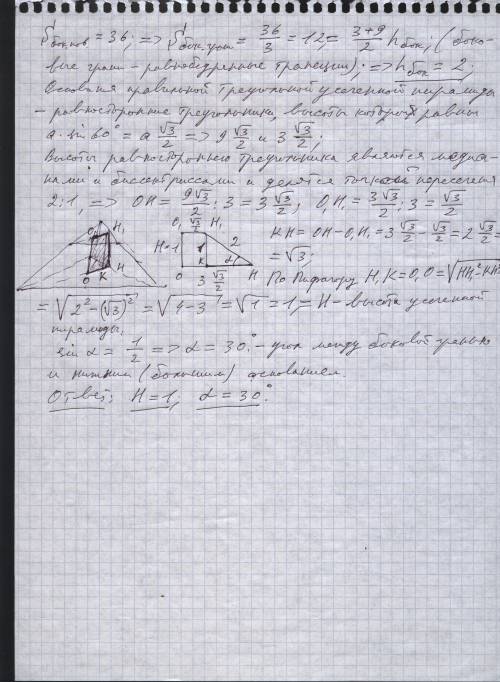 S бок.пов = 36; => S' бок.гран = 36/3 = 12, = (3+9)/2 h бок; (боко-
вые грани - равнобедренные трапеции); => h бок = 2;
Основания правильной треугольной усеченной пирамиды
- равносторонние треугольники, высоты которых равны
a·sin 60° = a √3/2 => 9 √3/2 и 3 √3/2;
Высоты равностороннего треугольника являются медиа-
нами и биссектрисами и делятся точкой пересечения
2:1, => OH = 9√3/2 : 3 = 3 √3/2; O₁H₁ = 3√3/2 : 3 = √3/2
KH = OH - O₁H₁ = 3 √3/2 - √3/2 = 2 √3/2 =
= √3;
O₁ H₁ O K H
O₁ √3/2 H₁ H=1 1 2 α O K H 3 √3/2
По Пифагору H₁K = O₁O = √HH₁² KH²
= √2² - (√3)² = √4-3 = √1 = 1, = H - высота усеченной
пирамиды.
sin α = 1/2 => α = 30° - угол между боковой гранью
и нижним (большим) основанием.
Ответ: H = 1, α = 30°